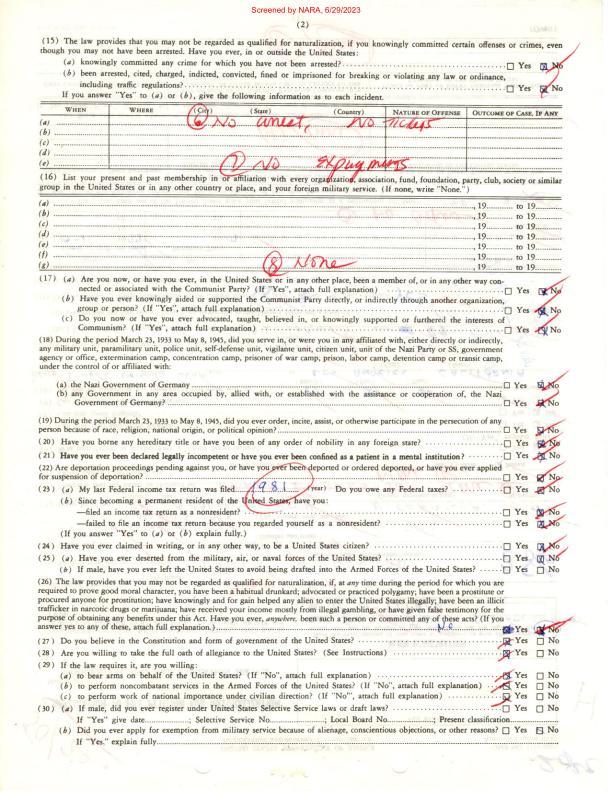 Screened by NARA, 6/29/2023
(2)
(15) The law provides that you may not be regarded as qualified for naturalization, if you knowingly committed certain offenses or crimes, even
though you may not have been arrested. Have you ever, in or outside the United States:
(a) knowingly committed any crime for which you have not been arrested? ☐ Yes ☒ No
(b) been arrested, cited, charged, indicted, convicted, fined or imprisoned for breaking or violating any law or ordinance,
including traffic regulations? ☐ Yes ☒ No
If you answer "Yes" to (a) or (b), give the following information as to each incident.
WHEN WHERE (City) (State) (Country) NATURE OF OFFENSE OUTCOME OF CASE, IF ANY
(a) 6 No arrest, No tickets
(b)
(c)
(d)
(e) 7 No
(16) List your present and past membership in or affiliation with every organization, association, fund, foundation, party, club, society or similar
group in the United States or in any other country or place, and your foreign military service. (If none, write "None.")
(a) , 19 to 19
(b) , 19 to 19
(c) , 19 to 19
(d) , 19 to 19
(e) , 19 to 19
(f) , 19 to 19
(g) 8 None , 19 to 19
(17) (a) Are you now, or have you ever, in the United States or in any other place, been a member of, or in any other way con-
nected or associated with the Communist Party? (If "Yes", attach full explanation) ☐ Yes ☒ No
(b) Have you ever knowingly aided or supported the Communist Party directly, or indirectly through another organization,
group or person? (If "Yes", attach full explanation) ☐ Yes ☒ No
(c) Do you now or have you ever advocated, taught, believed in, or knowingly supported or furthered the interests of
Communism? (If "Yes", attach full explanation) ☐ Yes ☒ No
(18) During the period March 23, 1933 to May 8, 1945, did you serve in, or were you in any way affiliated with, either directly or indirectly,
any military unit, paramilitary unit, police unit, self-defense unit, vigilante unit, citizen unit, unit of the Nazi Party or SS, government
agency or office, extermination camp, concentration camp, prisoner of war camp, prison, labor camp, detention camp or transit camp,
under the control of or affiliated with:
(a) the Nazi Government of Germany ☐ Yes ☒ No
(b) any Government in any area occupied by, allied with, or established with the assistance or cooperation of, the Nazi
Government of Germany? ☐ Yes ☒ No
(19) During the period March 23, 1933 to May 8, 1945, did you ever order, incite, assist, or otherwise participate in the persecution of any
person because of race, religion, national origin, or political opinion? ☐ Yes ☒ No
(20) Have you borne any hereditary title or have you been of any order of nobility in any foreign state? ☐ Yes ☒ No
(21) Have you ever been declared legally incompetent or have you ever been confined as a patient in a mental institution? ☐ Yes ☒ No
(22) Are deportation proceedings pending against you, or have you ever been deported or ordered deported, or have you ever applied
for suspension of deportation? ☐ Yes ☒ No
(23) (a) My last Federal income tax return was filed 1981 (year) Do you owe any Federal taxes? ☐ Yes ☒ No
(b) Since becoming a permanent resident of the United States, have you:
—filed an income tax return as a nonresident? ☐ Yes ☒ No
—failed to file an income tax return because you regarded yourself as a nonresident? ☐ Yes ☒ No
(If you answer "Yes" to (a) or (b) explain fully.)
(24) Have you ever claimed in writing, or in any other way, to be a United States citizen? ☐ Yes ☒ No
(25) (a) Have you ever deserted from the military, air, or naval forces of the United States? ☐ Yes ☒ No
(b) If male, have you ever left the United States to avoid being drafted into the Armed Forces of the United States? ☐ Yes ☐ No
(26) The law provides that you may not be regarded as qualified for naturalization, if, at any time during the period for which you are
required to prove good moral character, you have been a habitual drunkard; advocated or practiced polygamy; have been a prostitute or
procured anyone for prostitution; have knowingly and for gain helped any alien to enter the United States illegally; have been an illicit
trafficker in narcotic drugs or marijuana; have received your income mostly from illegal gambling, or have given false testimony for the
purpose of obtaining any benefits under this Act. Have you ever, anywhere, been such a person or committed any of these acts? (If you
answer yes to any of these, attach full explanation.) No ☒ Yes ☒ No
(27) Do you believe in the Constitution and form of government of the United States? ☒ Yes ☐ No
(28) Are you willing to take the full oath of allegiance to the United States? (See Instructions) ☒ Yes ☐ No
(29) If the law requires it, are you willing:
(a) to bear arms on behalf of the United States? (If "No", attach full explanation) ☒ Yes ☐ No
(b) to perform noncombatant services in the Armed Forces of the United States? (If "No", attach full explanation) ☒ Yes ☐ No
(c) to perform work of national importance under civilian direction? (If "No", attach full explanation) ☒ Yes ☐ No
(30) (a) If male, did you ever register under United States Selective Service laws or draft laws? ☐ Yes ☐ No
If "Yes" give date ; Selective Service No. ; Local Board No. ; Present classification
(b) Did you ever apply for exemption from military service because of alienage, conscientious objections, or other reasons? ☐ Yes ☒ No
If "Yes." explain fully